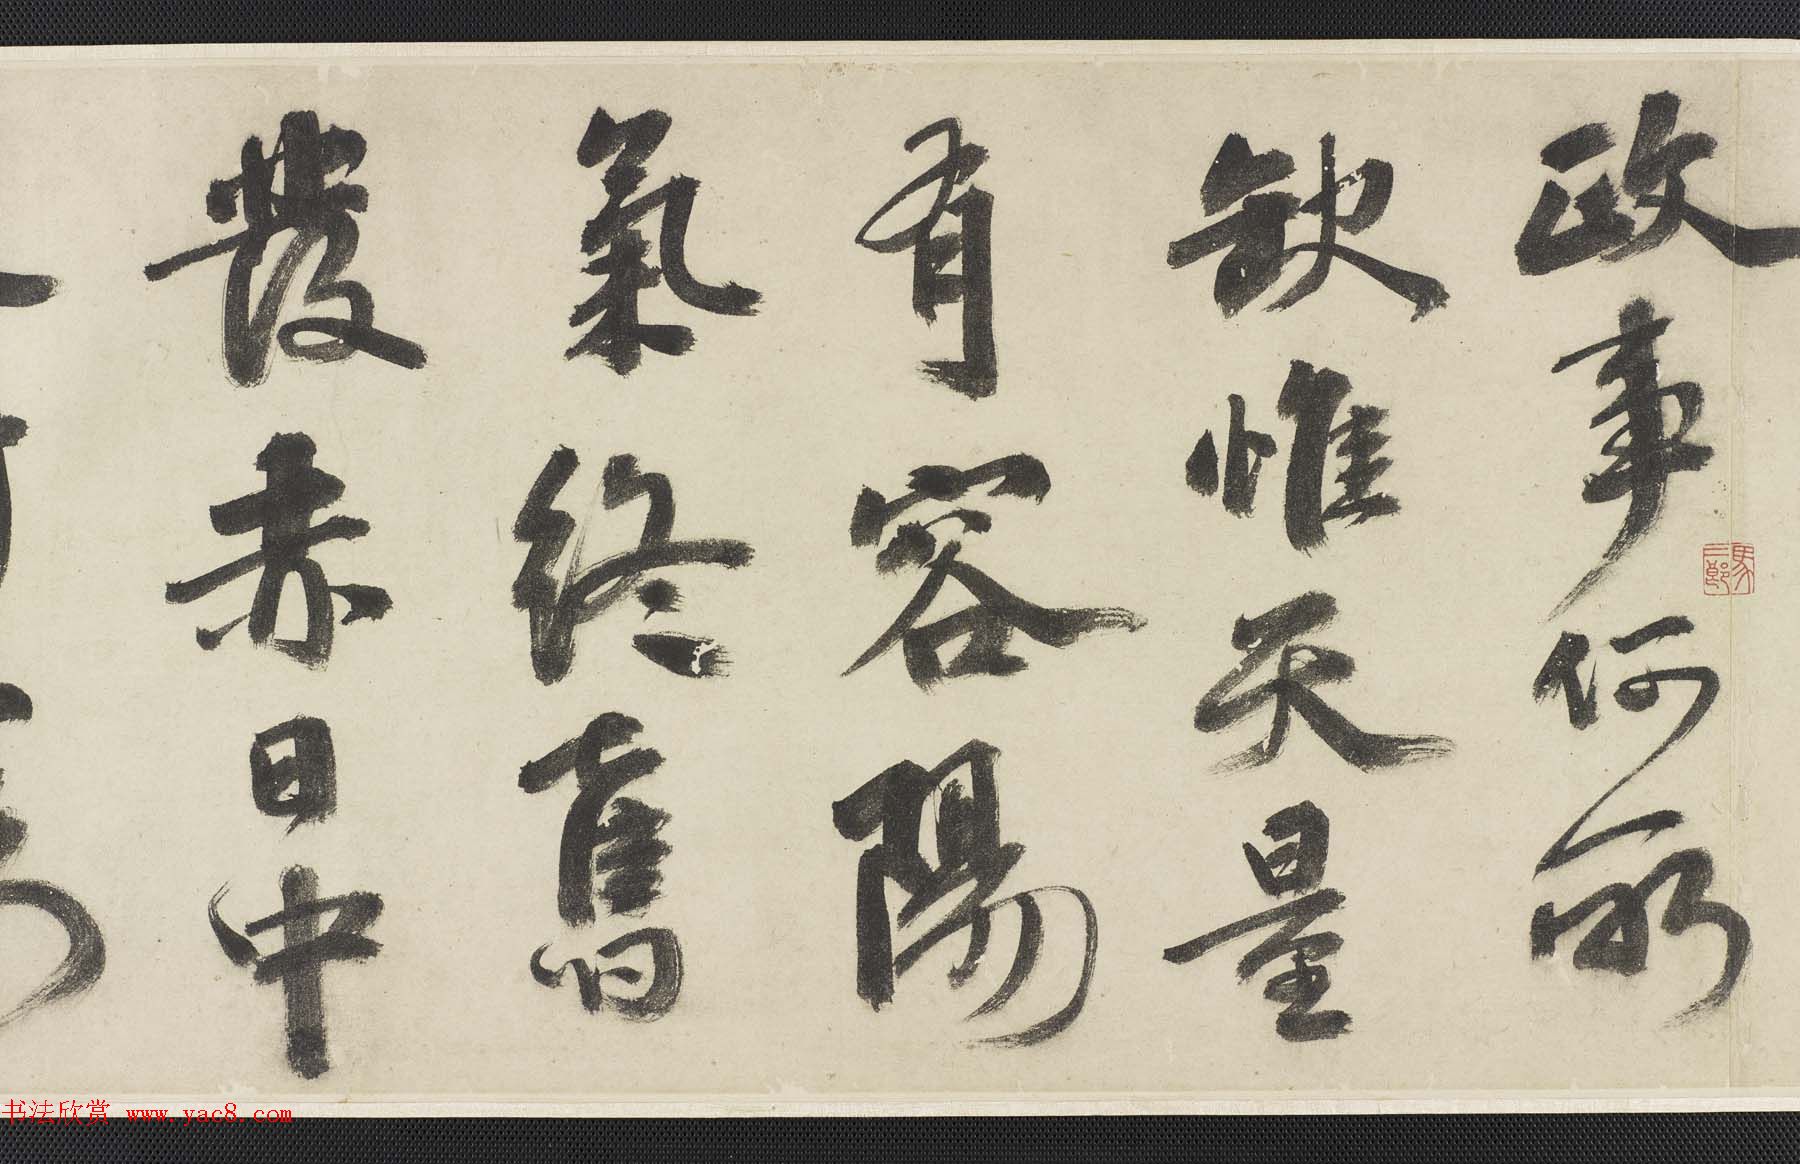 政事何所
缺惟天量
有容陽
氣終舊
發赤日中
书法欣赏 www.yac8.com